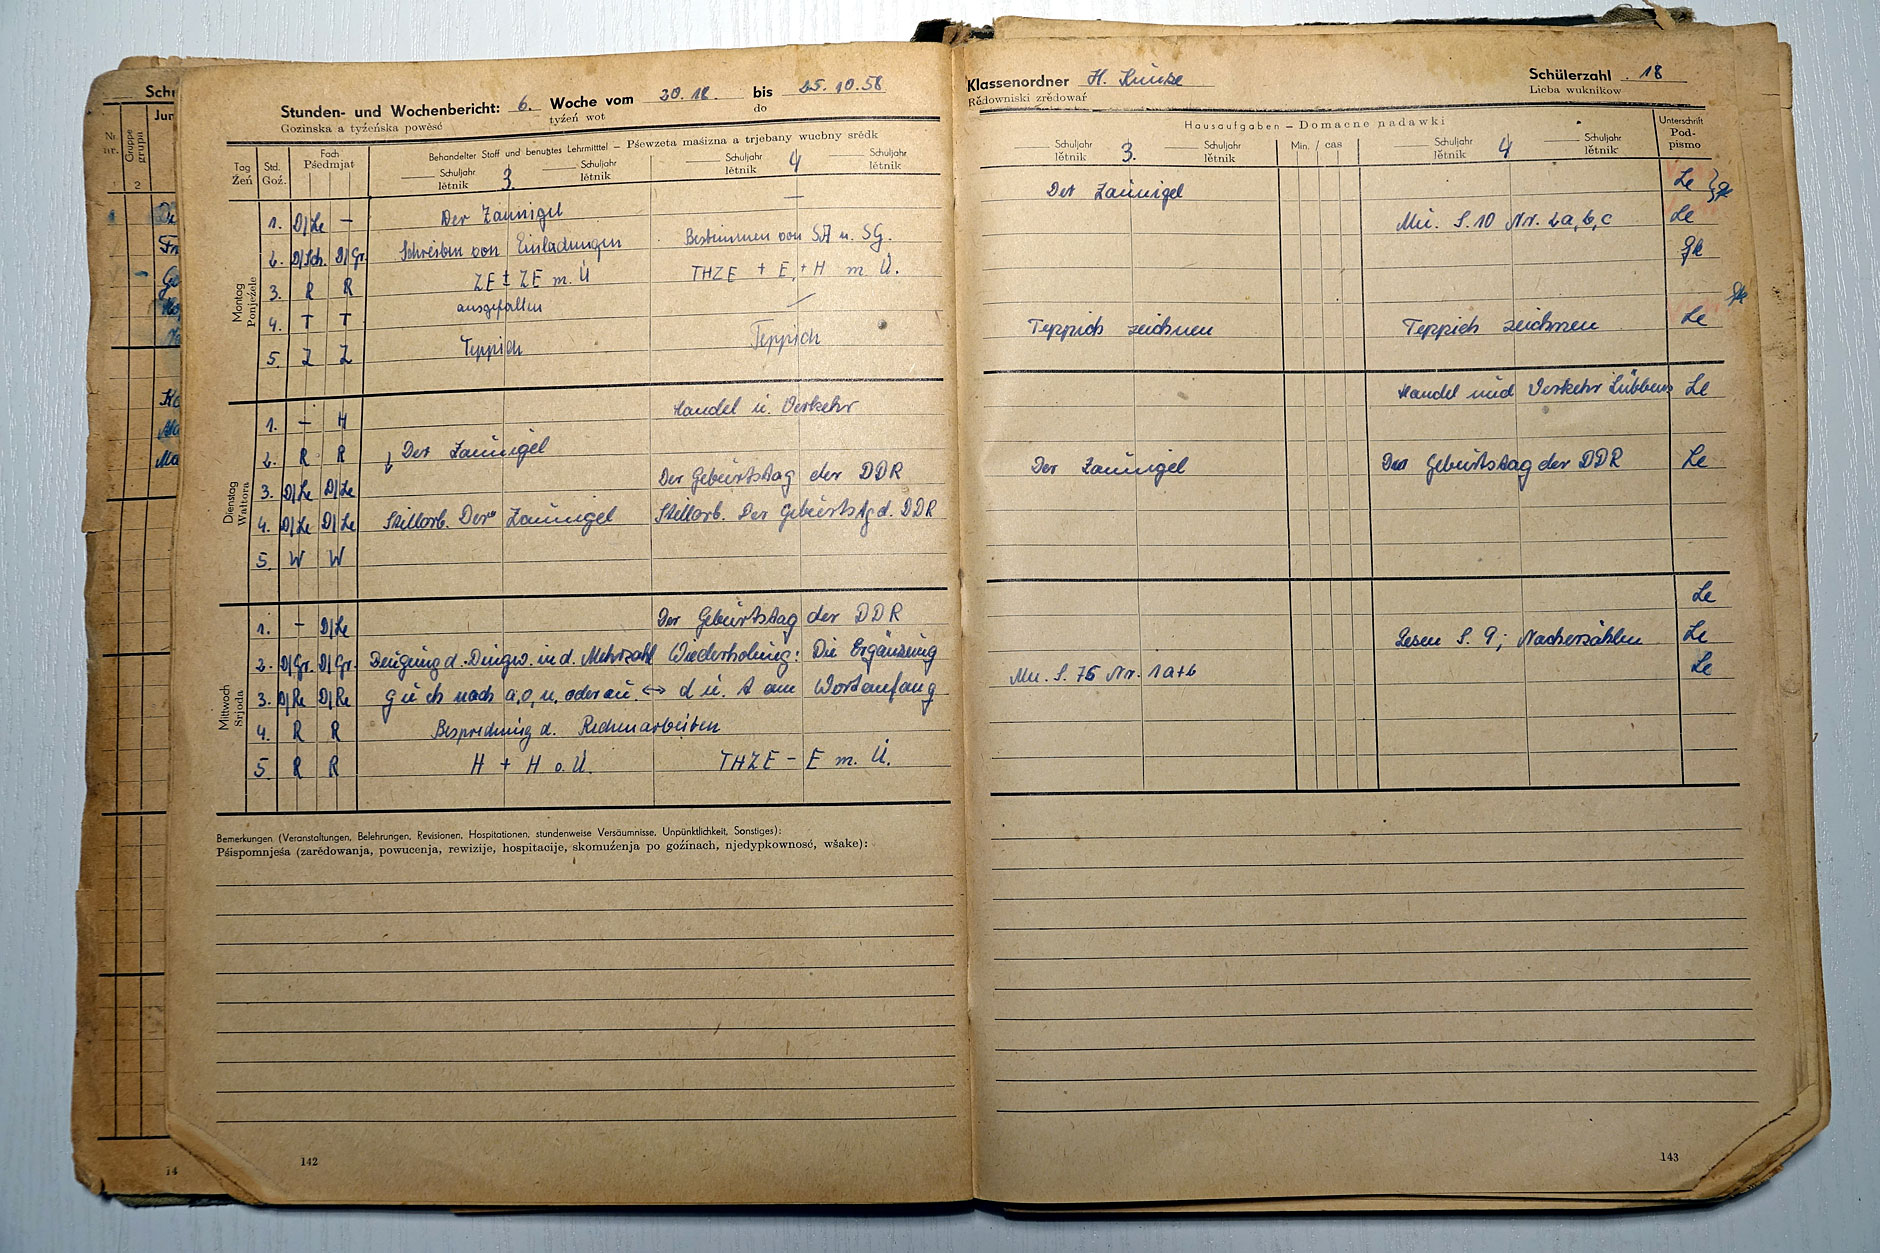 Stunden- und Wochenbericht: 6. Woche vom 20.10. bis 25.10.58
Gozinska a tyźeńska powěsć tyźeń wot do
Tag Std. Fach Behandelter Stoff und benutztes Lehrmittel – Pśewzeta maśizna a trjebany wucbny srědk
Źeń Goź. Pśedmjat Schuljahr 3. Schuljahr Schuljahr 4 Schuljahr
lětnik lětnik lětnik lětnik
Montag
Ponjeźele
1. D/Le — Der Zaunigel —
2. D/Sch. D/Gr. Schreiben von Einladungen Bestimmen von SA u. SG.
3. R R ZE ± ZE m. Ü THZE + E, + H m. Ü.
4. T T ausgefallen —
5. Z Z Teppich Teppich
Dienstag
Wałtora
1. — H Handel u. Verkehr
2. R R Der Zaunigel
3. D/Le D/Le Der Geburtstag der DDR
4. D/Le D/Le Stillarb. Der Zaunigel Stillarb. Der Geburtstg d. DDR
5. W W
Mittwoch
Srjoda
1. — D/Le Der Geburtstag der DDR
2. D/Gr. D/Gr. Beugung d. Dingw. in d. Mehrzahl Wiederholung: Die Ergänzung
3. D/Re D/Re g u ch nach a, o, u, oder au. ↔ d u. t am Wortanfang
4. R R Besprechung d. Rechenarbeiten
5. R R H + H o. Ü. THZE – E m. Ü.
Bemerkungen (Veranstaltungen, Belehrungen, Revisionen, Hospitationen, stundenweise Versäumnisse, Unpünktlichkeit, Sonstiges):
Pśispomnjeśa (zarědowanja, powucenja, rewizije, hospitacije, skomuźenja po goźinach, njedypkownosć, wšake):
142
Klassenordner H. Kunke Schülerzahl 18
Rědowniski zrědowaŕ Licba wuknikow
Hausaufgaben – Domacne nadawki Unterschrift
Schuljahr 3. Schuljahr Min. / cas Schuljahr 4 Schuljahr Pod-
lětnik lětnik lětnik lětnik pismo
Der Zaunigel Le
Mu. S. 10 Nr. 2a, b, c Le
Teppich zeichnen Teppich zeichnen Le
Handel und Verkehr Lübbens Le
Der Zaunigel Der Geburtstag der DDR Le
Le
Lesen S. 9; Nacherzählen Le
Mu. S. 76 Nr. 1a+b Le
143
Nr.
nr.
Gruppe
grupa
2
14